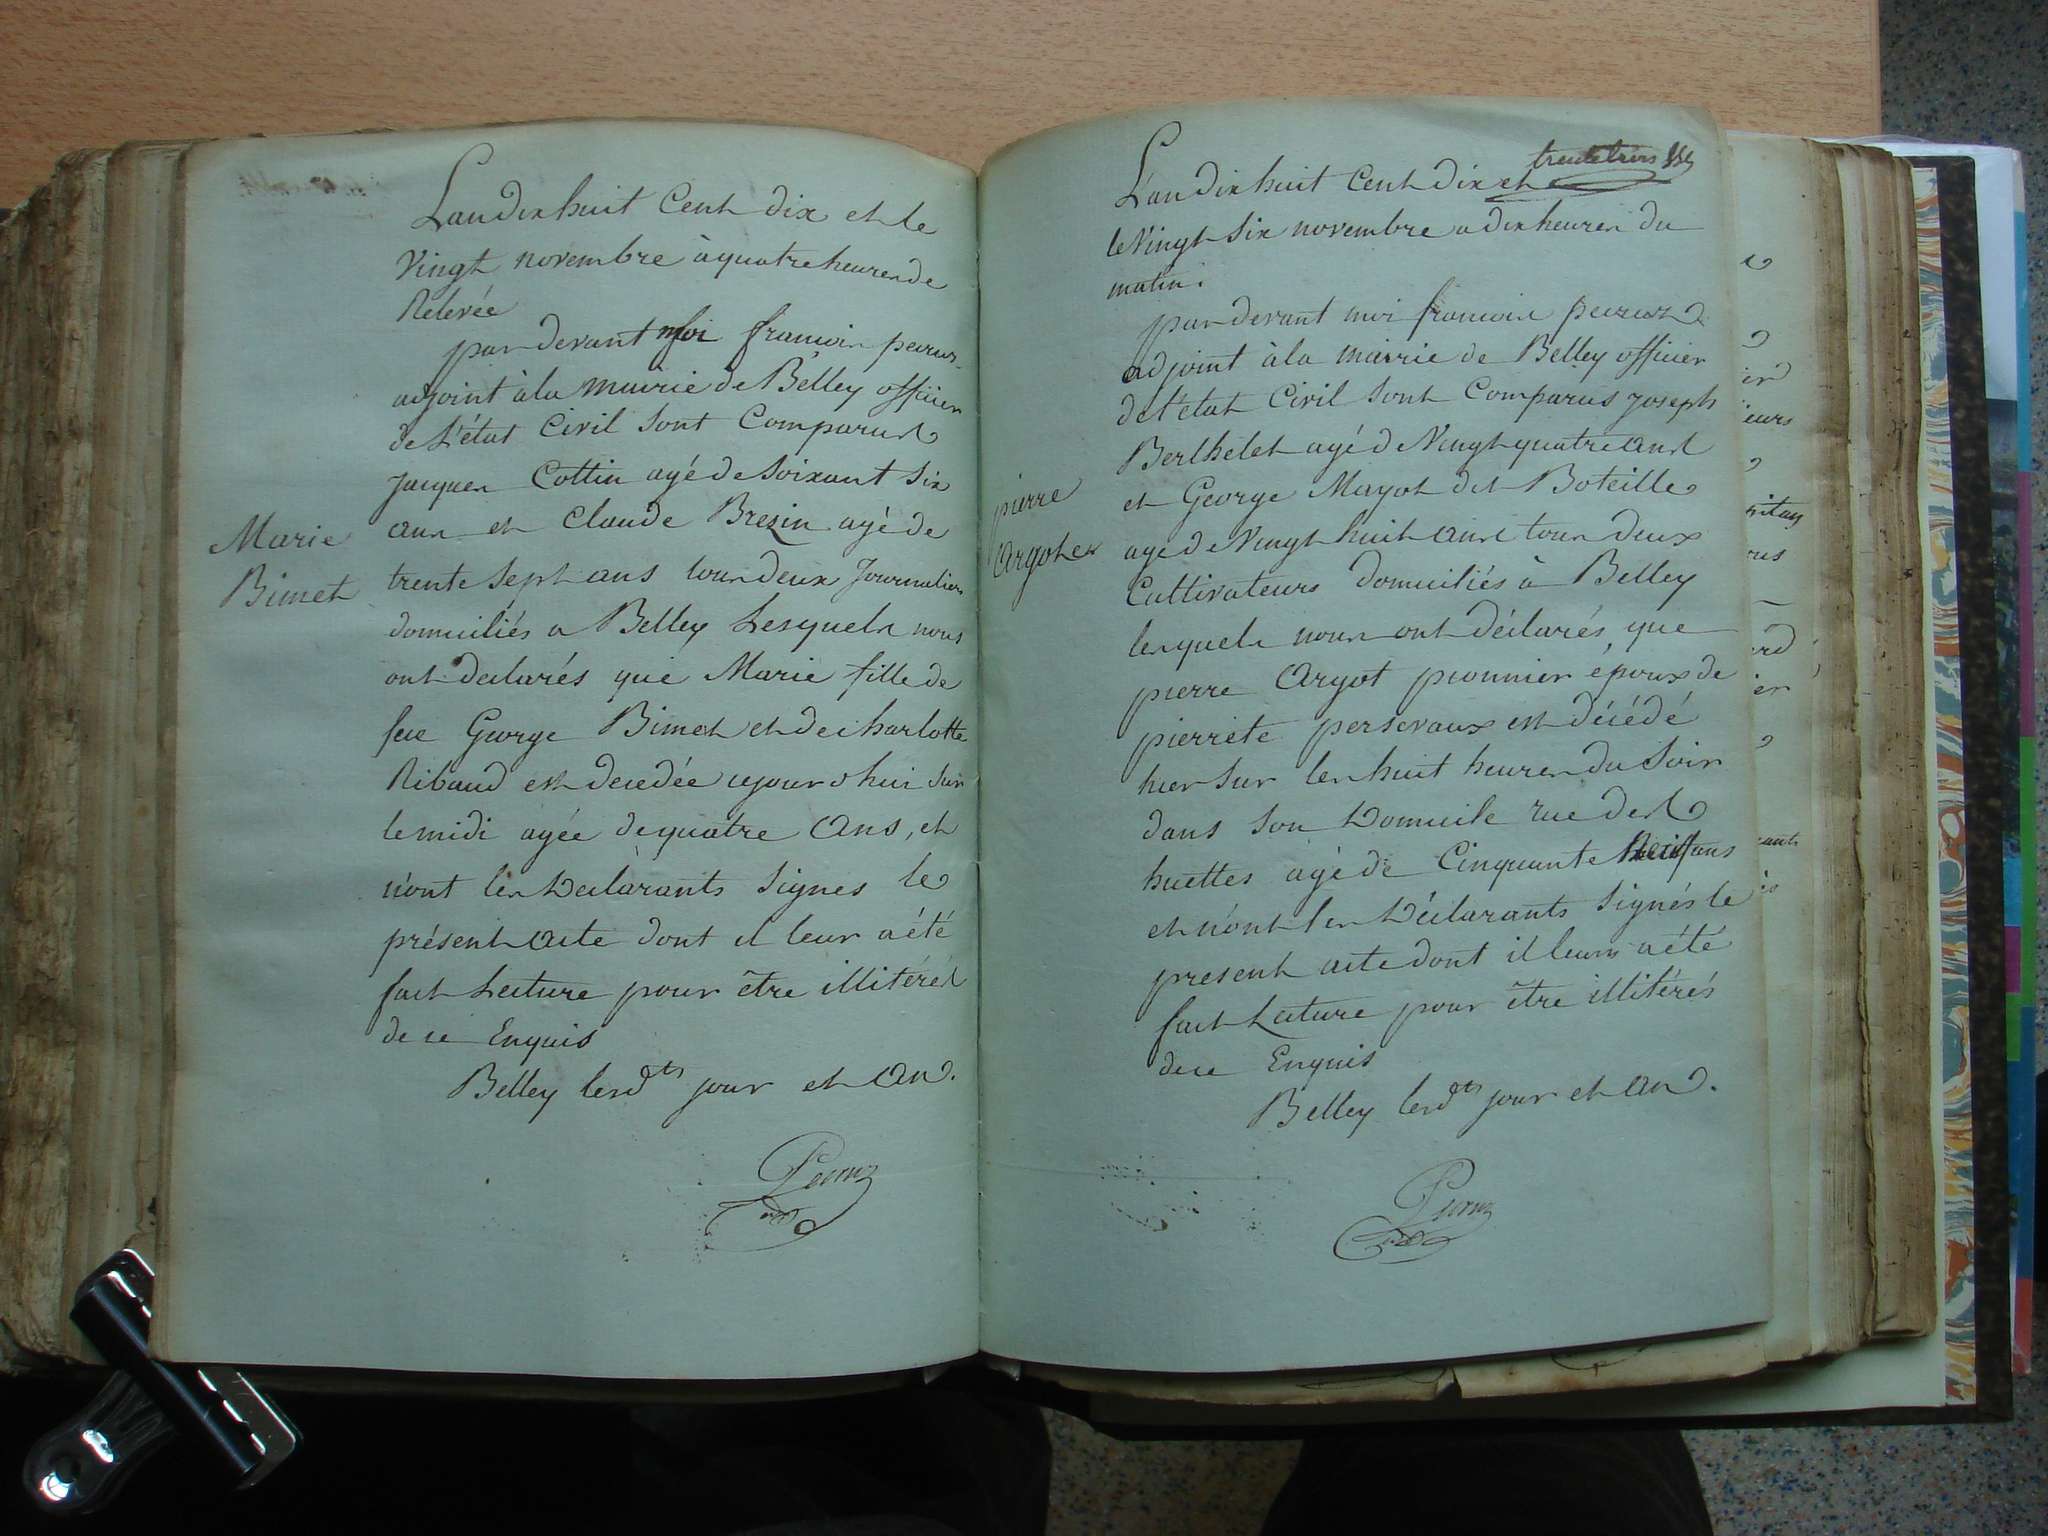 L'an dix huit Cent dix et le
Vingt novembre à quatre heures de
Relevée
par devant moi francois peeruz
adjoint à la mairie de Belley officier
de L'état Civil sont Comparus
Jacques Cottin agé de soixant six
ans et Claude Brezin agé de
trente sept ans tous deux Journaliers
domiciliés a Belley Lesquels nous
ont declarés que Marie fille de
feu George Bimet et de charlotte
Ribaud est decedée cejourdhui sur
le midi agée de quatre ans, et
n'ont les Declarants signes le
présent acte dont il leur a été
fait Lecture pour être illitérés
de ce Enquis
Belley lesdts jour et an.
Marie
Bimet
trente trois
L'an dix huit Cent dix et
le Vingt six novembre a dix heures du
matin.
par devant moi francois
adjoint à la mairie de Belley officier
de l'état Civil sont Comparus joseph
Berthelet agé de Vingt quatre ans
et George Mayot dit Boteille
agé de Vingt huit ans tous deux
Cultivateurs domiciliés à Belley
lesquels nous ont déclarés que
pierre Argot pionnier époux de
pierrete persevaux est décédé
hier sur les huit heures du soir
dans son Domicile rue des
huettes agé de Cinquante neuf ans
et n'ont les Déclarants signés le
present acte dont il leurs a été
fait Lecture pour être illitérés
de ce Enquis
Belley lesdts jour et an.
pierre